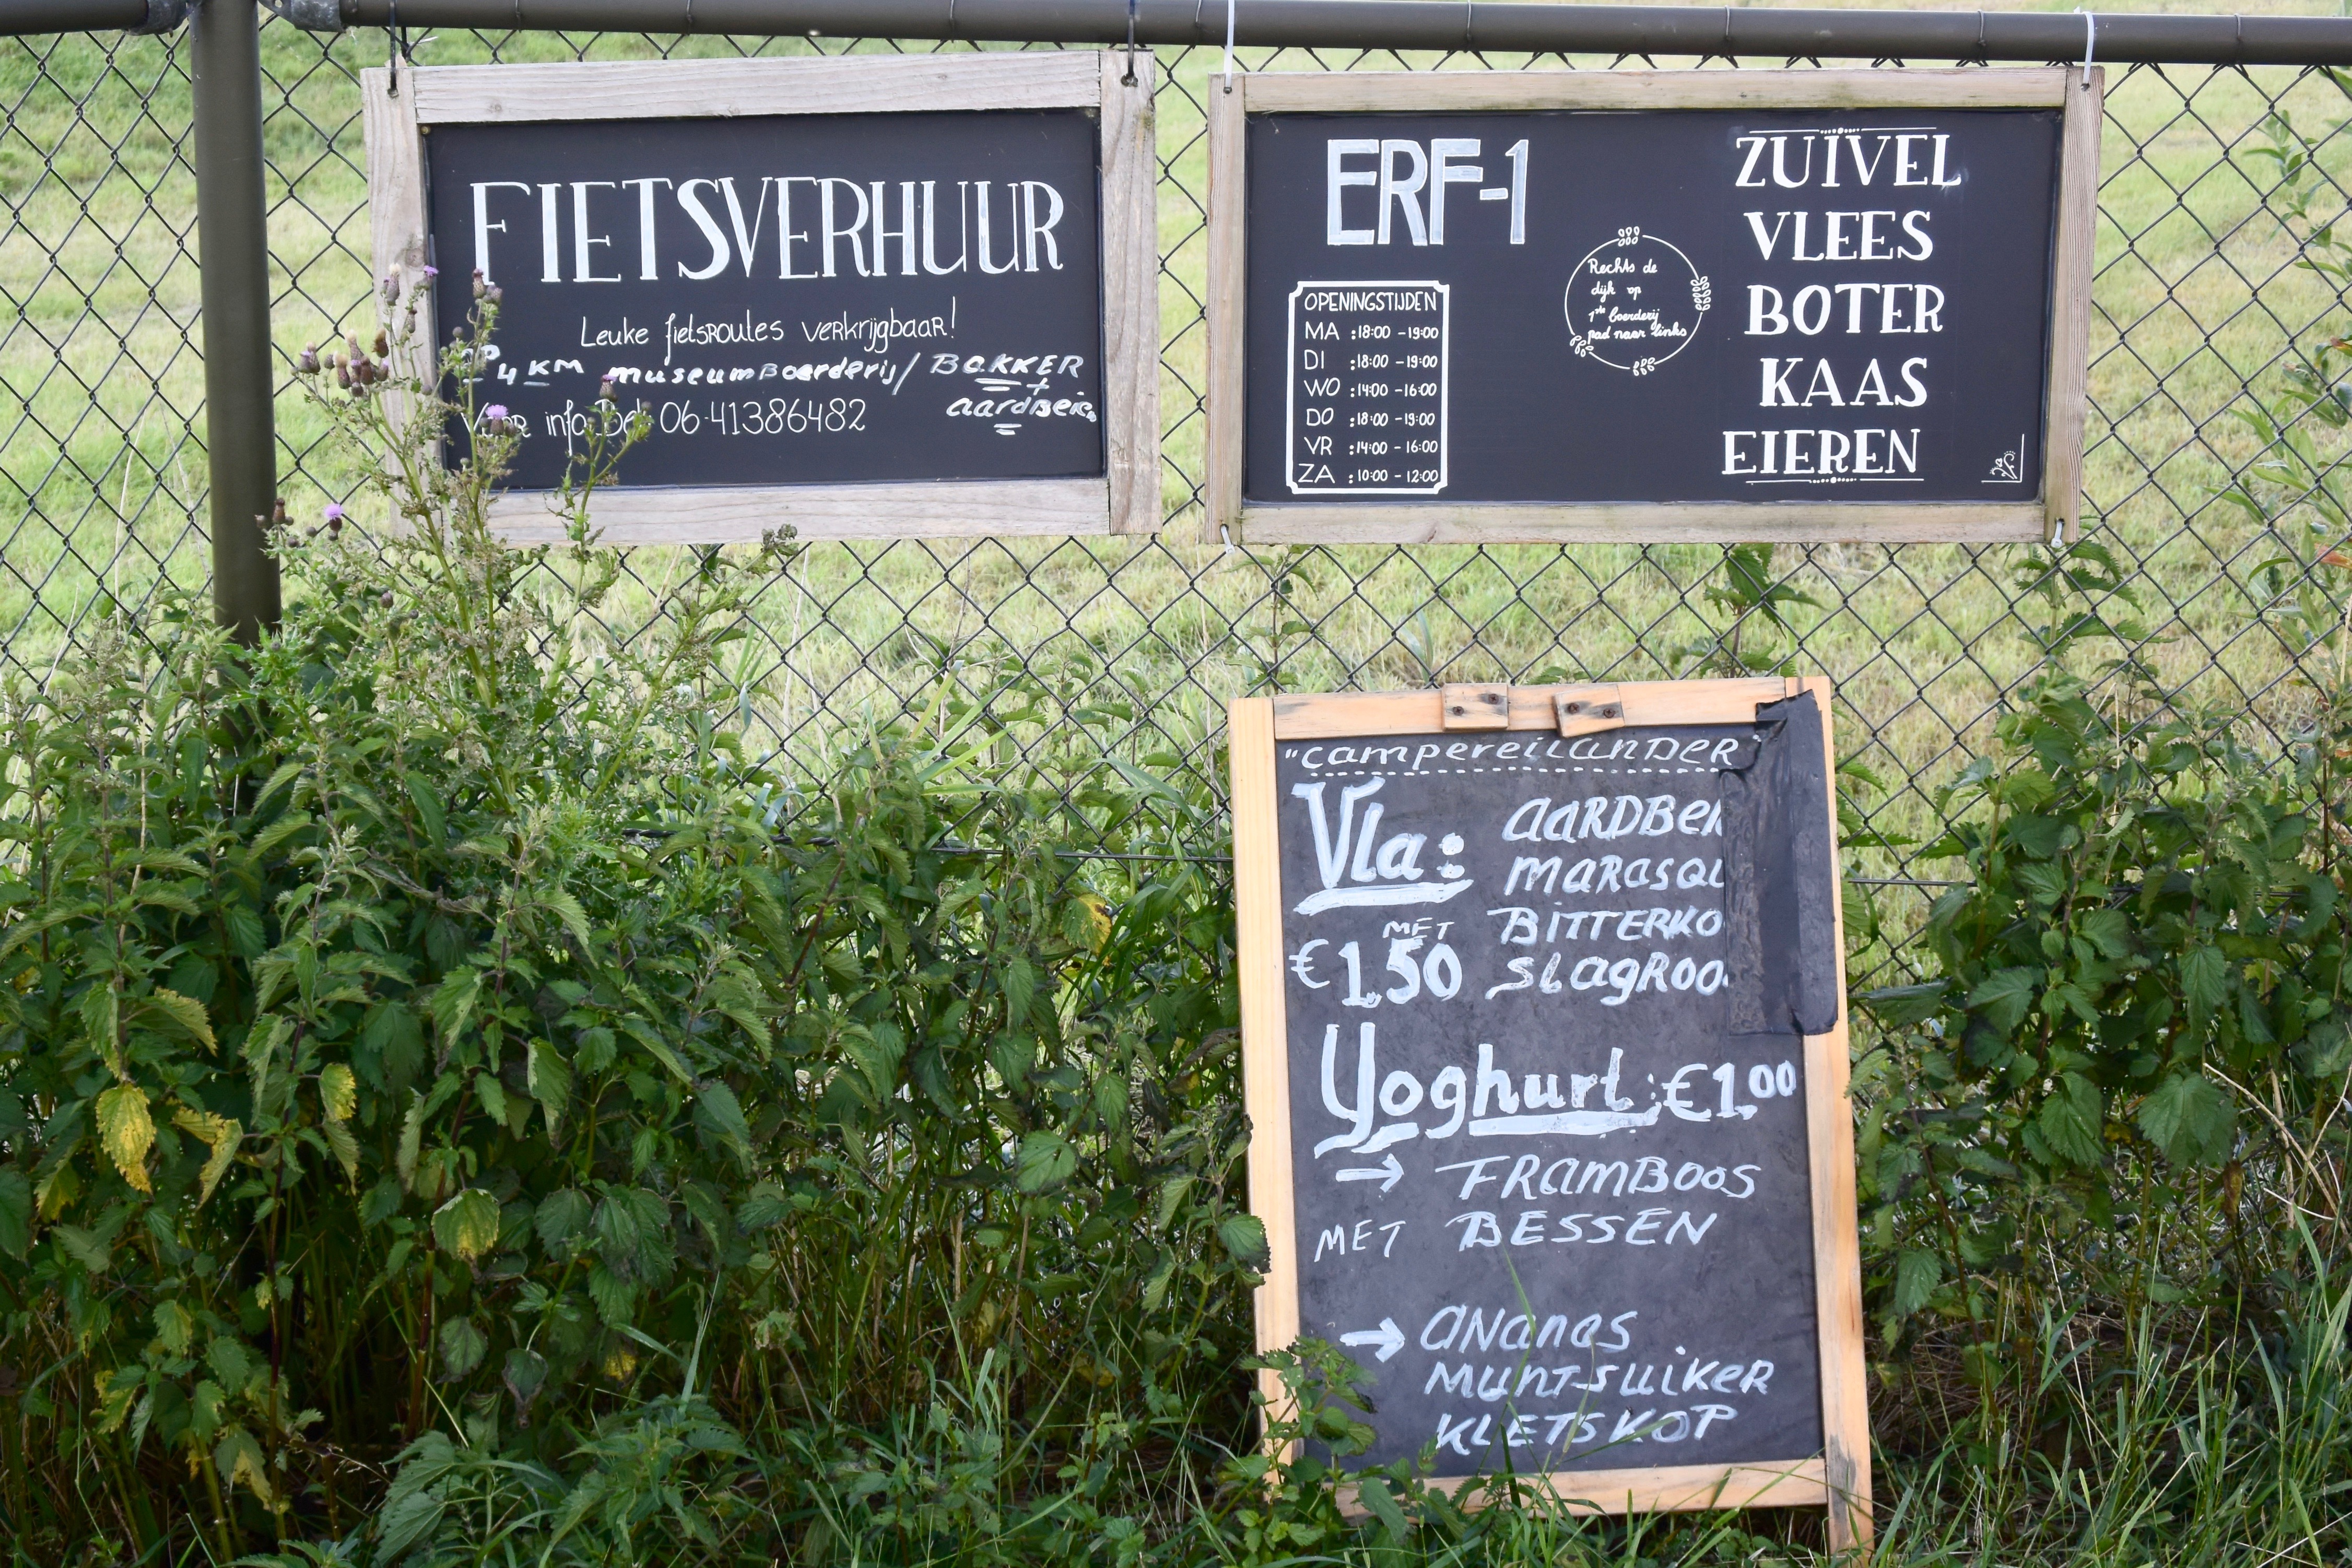 FIETSVERHUUR
Leuke fietsroutes verkrijgbaar!
OP 4 KM museumBoerderij / BAKKER
+
aardbei
Voor info: Bel 06-41386482
ERF-1
OPENINGSTIJDEN
MA : 18:00 - 19:00
DI : 18:00 - 19:00
WO : 14:00 - 16:00
DO : 18:00 - 19:00
VR : 14:00 - 16:00
ZA : 10:00 - 12:00
Rechts de
dijk op
1ste boerderij
pad naar links
ZUIVEL
VLEES
BOTER
KAAS
EIEREN
"campereilanDER"
Vla: aaRDBei
maRasqu
MET BITTERKO
€1.50 SlagROO
Yoghurt: €1.00
→ FRamBOOS
MET BESSEN
→ aNanas
MUNT-SUiKER
KLETSKOP